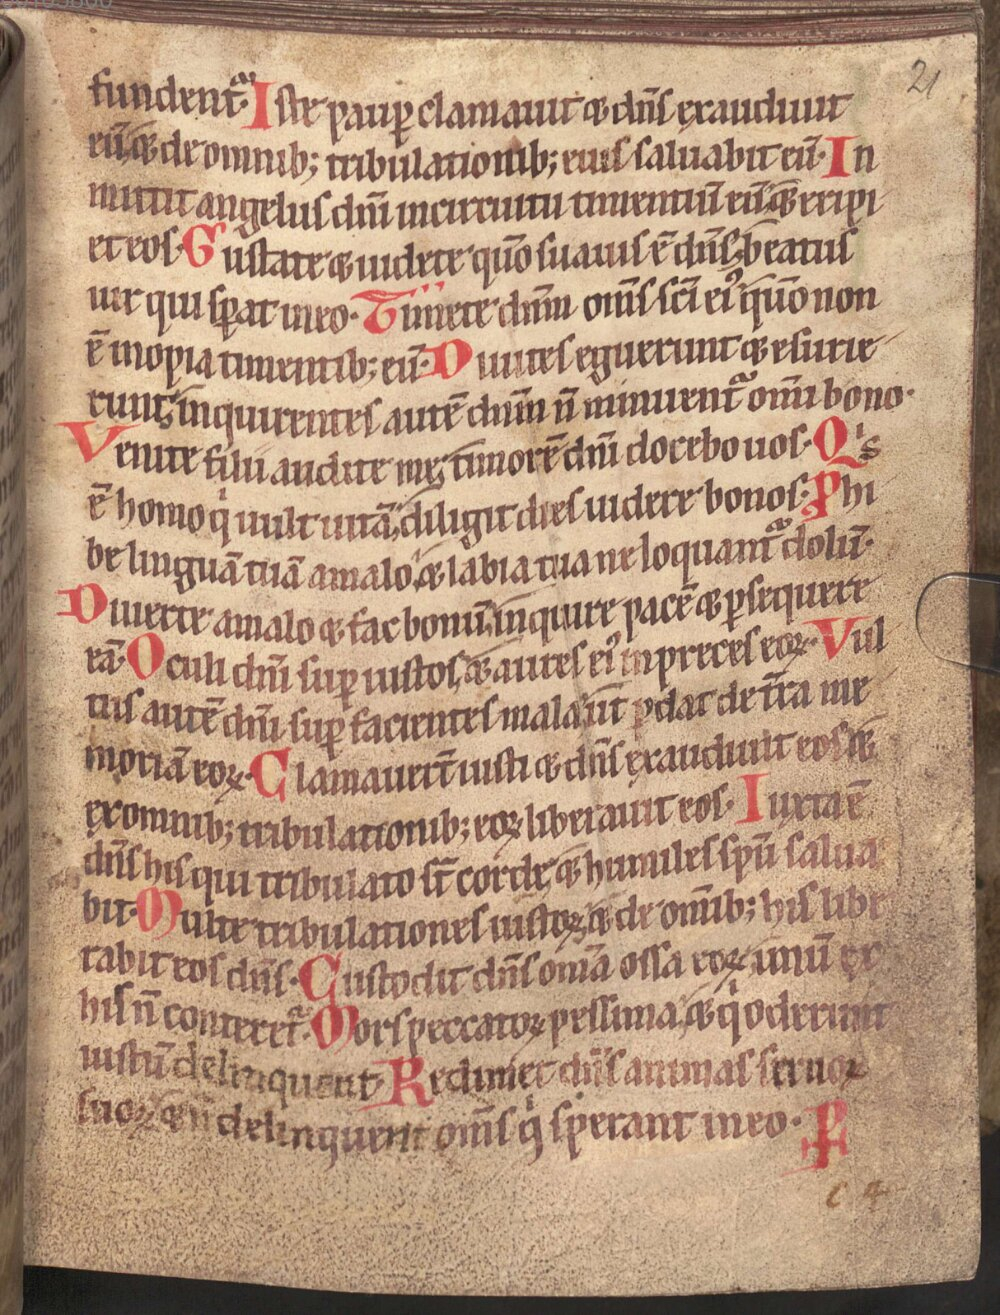 21
fundent᷑. Iste paup̲ clamauit & dn̄s exaudiuit
eū, & de omnib; tribulationib; eius saluabit eū. In
mittit angelus dn̄i in circuitu timentiū eū, & eripi
et eos. Gustate & uidete quō suauis ē dn̄s, beatus
uir qui sꝑat in eo. Timete dn̄m om̄s sc̄i ei᷒ quō non
ē inopia timentib; eū. Diuites eguerunt & esurie
runt, inquirentes autē dn̄m n̄ minuent᷑ om̄i bono.
Venite filii audite me, timorē dn̄i docebo uos. Qͥs
ē homo qͥ uult uitā, diligit dies uidere bonos. Phi
be linguā tuā a malo, & labia tua ne loquant᷑ dolū.
Diuerte a malo & fac bonū, inquire pacē & ꝑsequere
eā. Oculi dn̄i suꝑ iustos, & aures ei᷒ in preces eoꝝ. Vul
tus autē dn̄i suꝑ facientes mala, ut ꝑdat de t̄ra me
moriā eoꝝ. Clamauert̄ iusti & dn̄s exaudiuit eos, &
ex omnib; tribulationib; eoꝝ liberauit eos. Iuxta ē
dn̄s his qui tribulato st̄ corde, & humiles spū salua
bit. Multe tribulationes iustoꝝ, & de om̄ib; his libe
rabit eos dn̄s. Custodit dn̄s om̄a ossa eoꝝ, unū ex
his n̄ conteret᷑. Mors peccatoꝝ pessima, & qͥ oderunt
iustū delinquent. Redimet dn̄s animas seruoꝝ
suoꝝ, & n̄ delinquent om̄s qͥ sperant in eo. P